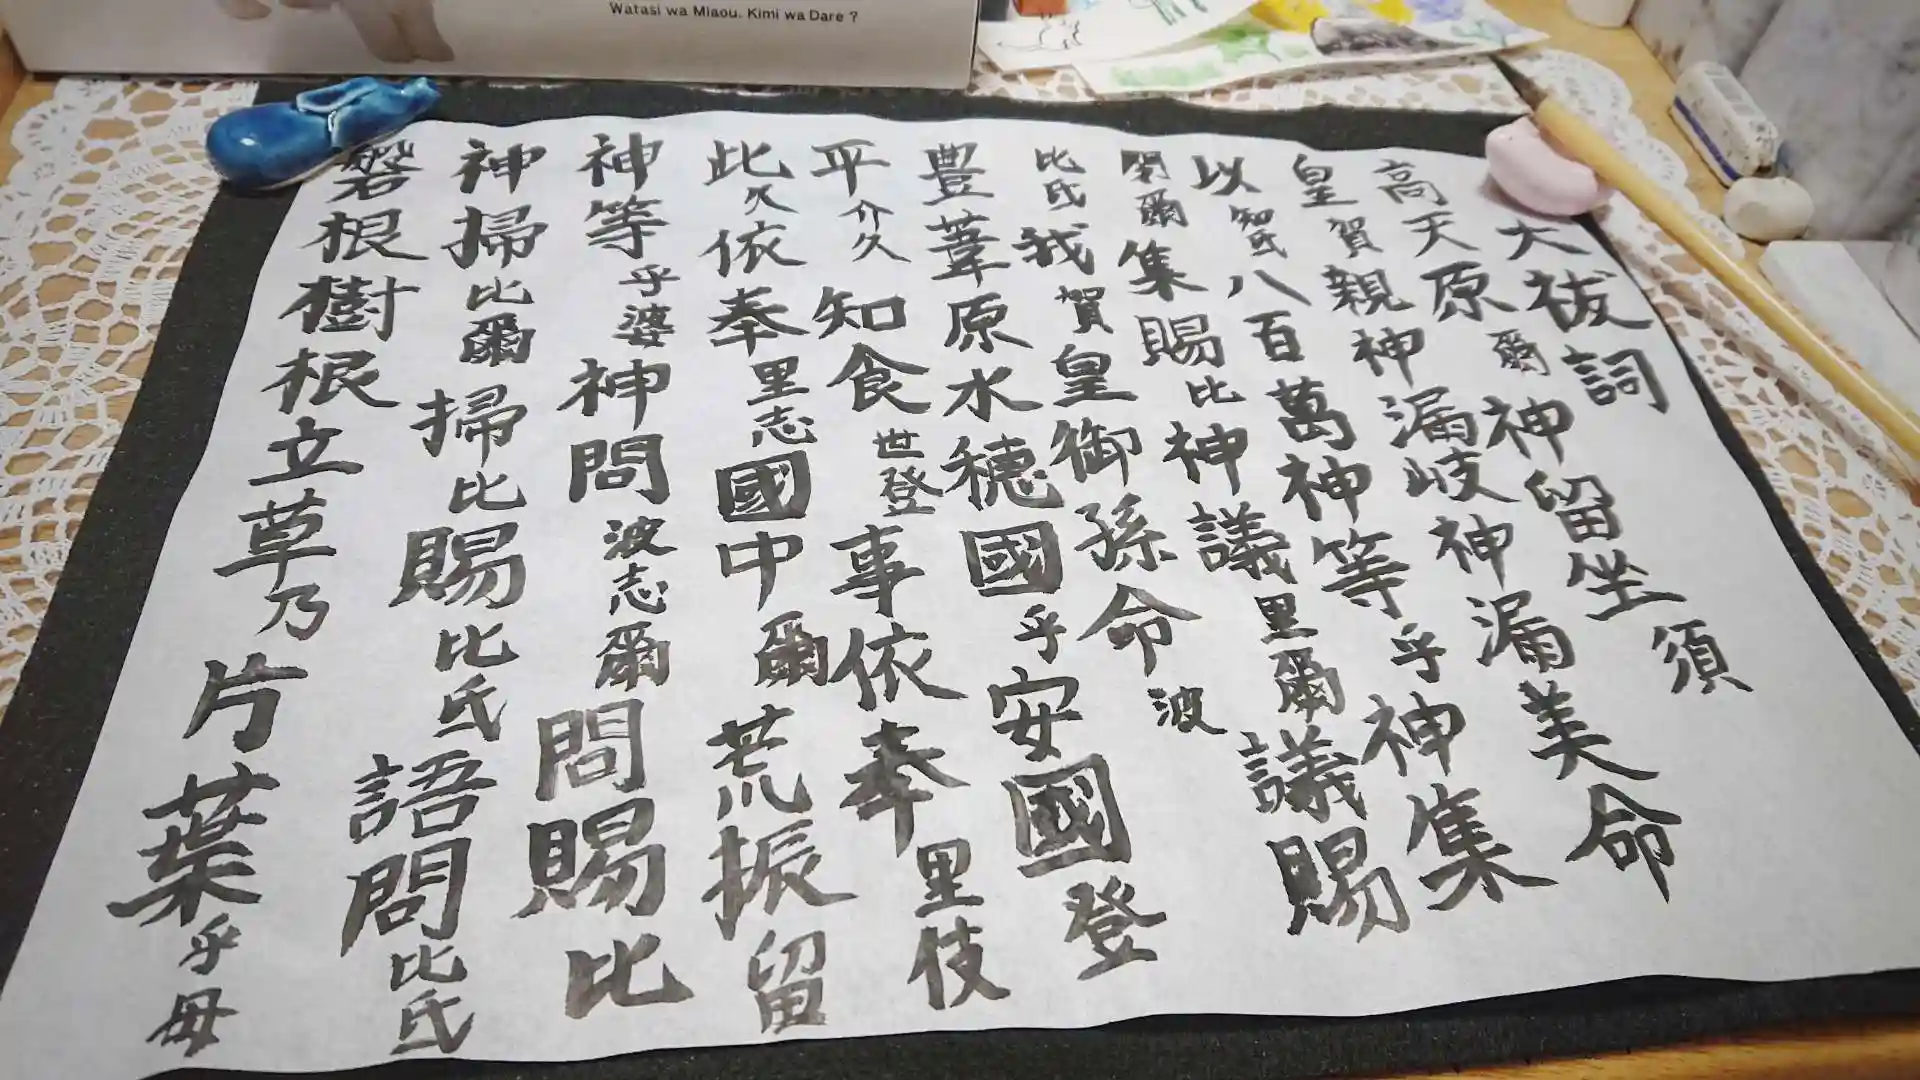 Watasi wa Miaou. Kimi wa Dare ?
大祓詞
高天原爾神留坐須
皇賀親神漏岐神漏美命
以知氐八百萬神等乎神集
閉爾集賜比神議里爾議賜
比氐我賀皇御孫命波
豊葦原水穂國乎安國登
平介久知食世登事依奉里伎
此久依奉里志國中爾荒振留
神等乎婆神問波志爾問賜比
神掃比爾掃比賜比氐語問比氐
磐根樹根立草乃片葉乎母